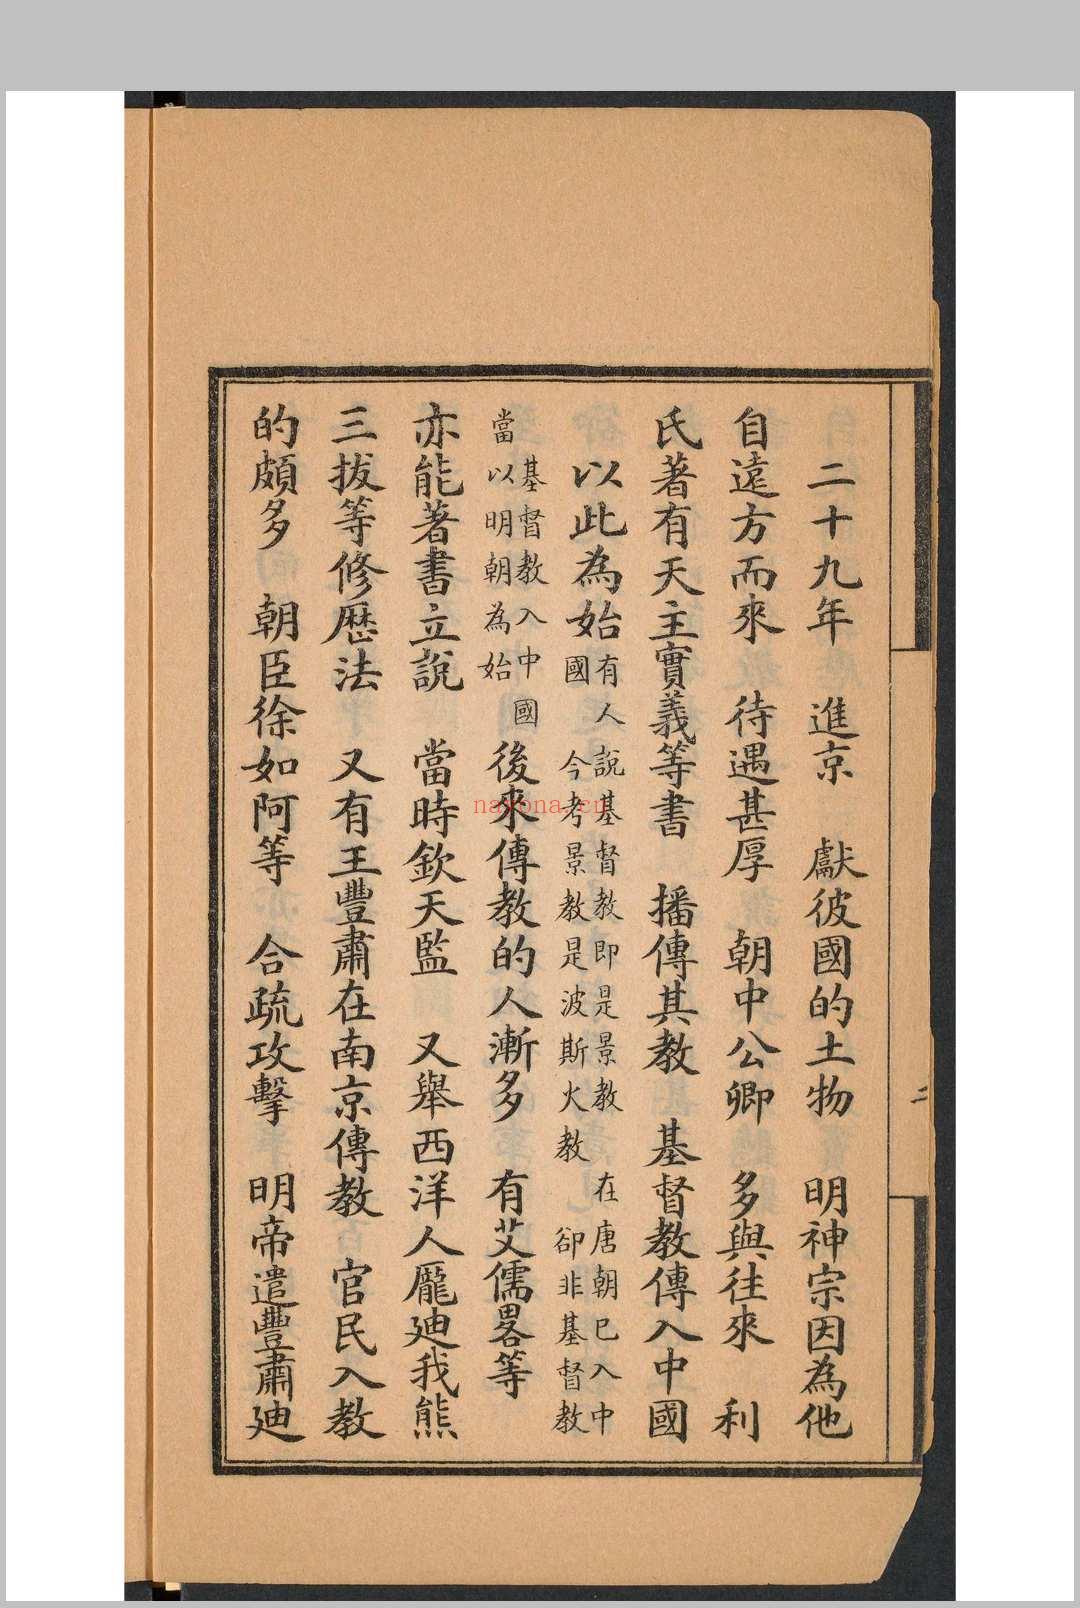 二十九年 進京 獻彼國的土物 明神宗因為他
自遠方而來 待遇甚厚 朝中公卿 多與往來 利
氏著有天主實義等書 播傳其教 基督教傳入中國
以此為始 有人說基督教即是景教 在唐朝已入中
國 今考景教是波斯火教 卻非基督教
基督教入中國
當以明朝為始 後來傳教的人漸多 有艾儒畧等
亦能著書立說 當時欽天監 又舉西洋人龐廸我熊
三拔等修曆法 又有王豐肅在南京傳教 官民入教
的頗多 朝臣徐如阿等 合疏攻擊 明帝遣豐肅廸
二
nayona.cn